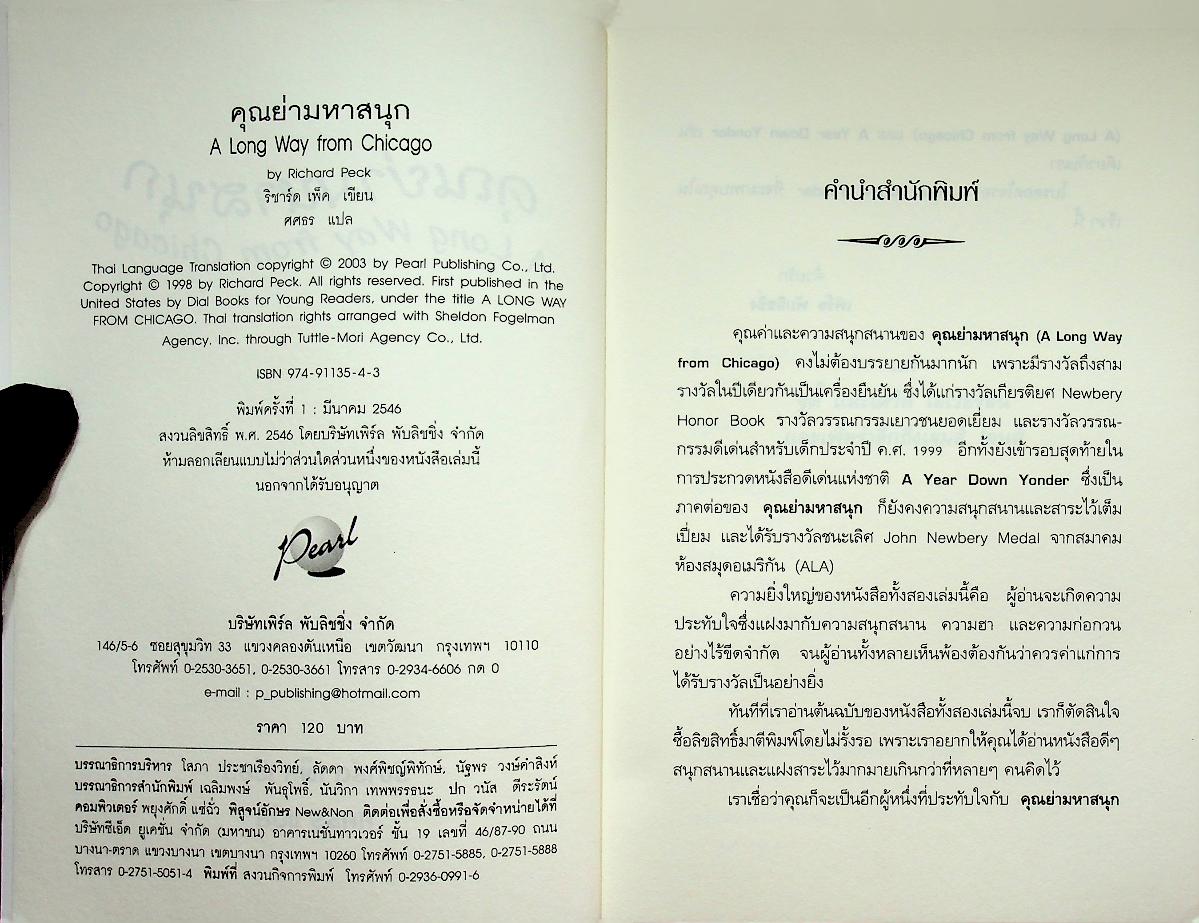 คุณย่ามหาสนุก
A Long Way from Chicago
by Richard Peck
ริชาร์ด เพ็ค เขียน
ศศธร แปล
Thai Language Translation copyright © 2003 by Pearl Publishing Co., Ltd.
Copyright © 1998 by Richard Peck. All rights reserved. First published in the
United States by Dial Books for Young Readers, under the title A LONG WAY
FROM CHICAGO. Thai translation rights arranged with Sheldon Fogelman
Agency, Inc. through Tuttle-Mori Agency Co., Ltd.
ISBN 974-91135-4-3
พิมพ์ครั้งที่ 1 : มีนาคม 2546
สงวนลิขสิทธิ์ พ.ศ. 2546 โดยบริษัทเพิร์ล พับลิชชิ่ง จำกัด
ห้ามลอกเลียนแบบไม่ว่าส่วนใดส่วนหนึ่งของหนังสือเล่มนี้
นอกจากได้รับอนุญาต
Pearl
บริษัทเพิร์ล พับลิชชิ่ง จำกัด
146/5-6 ซอยสุขุมวิท 33 แขวงคลองตันเหนือ เขตวัฒนา กรุงเทพฯ 10110
โทรศัพท์ 0-2530-3651, 0-2530-3661 โทรสาร 0-2934-6606 กด 0
e-mail : p_publishing@hotmail.com
ราคา 120 บาท
บรรณาธิการบริหาร โสภา ประชาเรืองวิทย์, ลัดดา พงศ์พิชญ์พิทักษ์, นัฐพร วงษ์คำสิงห์
บรรณาธิการสำนักพิมพ์ เฉลิมพงษ์ พันธุโพธิ์, นันวิกา เทพพรรธนะ ปก วนัส ตีระรัตน์
คอมพิวเตอร์ พยุงศักดิ์ แซ่ฉั่ว พิสูจน์อักษร New&Non ติดต่อเพื่อสั่งซื้อหรือจัดจำหน่ายได้ที่
บริษัทซีเอ็ด ยูเคชั่น จำกัด (มหาชน) อาคารเนชั่นทาวเวอร์ ชั้น 19 เลขที่ 46/87-90 ถนน
บางนา-ตราด แขวงบางนา เขตบางนา กรุงเทพฯ 10260 โทรศัพท์ 0-2751-5885, 0-2751-5888
โทรสาร 0-2751-5051-4 พิมพ์ที่ สงวนกิจการพิมพ์ โทรศัพท์ 0-2936-0991-6
คำนำสำนักพิมพ์
คุณค่าและความสนุกสนานของ คุณย่ามหาสนุก (A Long Way
from Chicago) คงไม่ต้องบรรยายกันมากนัก เพราะมีรางวัลถึงสาม
รางวัลในปีเดียวกันเป็นเครื่องยืนยัน ซึ่งได้แก่รางวัลเกียรติยศ Newbery
Honor Book รางวัลวรรณกรรมเยาวชนยอดเยี่ยม และรางวัลวรรณ-
กรรมดีเด่นสำหรับเด็กประจำปี ค.ศ. 1999 อีกทั้งยังเข้ารอบสุดท้ายใน
การประกวดหนังสือดีเด่นแห่งชาติ A Year Down Yonder ซึ่งเป็น
ภาคต่อของ คุณย่ามหาสนุก ก็ยังคงความสนุกสนานและสาระไว้เต็ม
เปี่ยม และได้รับรางวัลชนะเลิศ John Newbery Medal จากสมาคม
ห้องสมุดอเมริกัน (ALA)
ความยิ่งใหญ่ของหนังสือทั้งสองเล่มนี้คือ ผู้อ่านจะเกิดความ
ประทับใจซึ่งแฝงมากับความสนุกสนาน ความฮา และความก่อกวน
อย่างไร้ขีดจำกัด จนผู้อ่านทั้งหลายเห็นพ้องต้องกันว่าควรค่าแก่การ
ได้รับรางวัลเป็นอย่างยิ่ง
ทันทีที่เราอ่านต้นฉบับของหนังสือทั้งสองเล่มนี้จบ เราก็ตัดสินใจ
ซื้อลิขสิทธิ์มาตีพิมพ์โดยไม่รั้งรอ เพราะเราอยากให้คุณได้อ่านหนังสือดีๆ
สนุกสนานและแฝงสาระไว้มากมายเกินกว่าที่หลายๆ คนคิดไว้
เราเชื่อว่าคุณก็จะเป็นอีกผู้หนึ่งที่ประทับใจกับ คุณย่ามหาสนุก